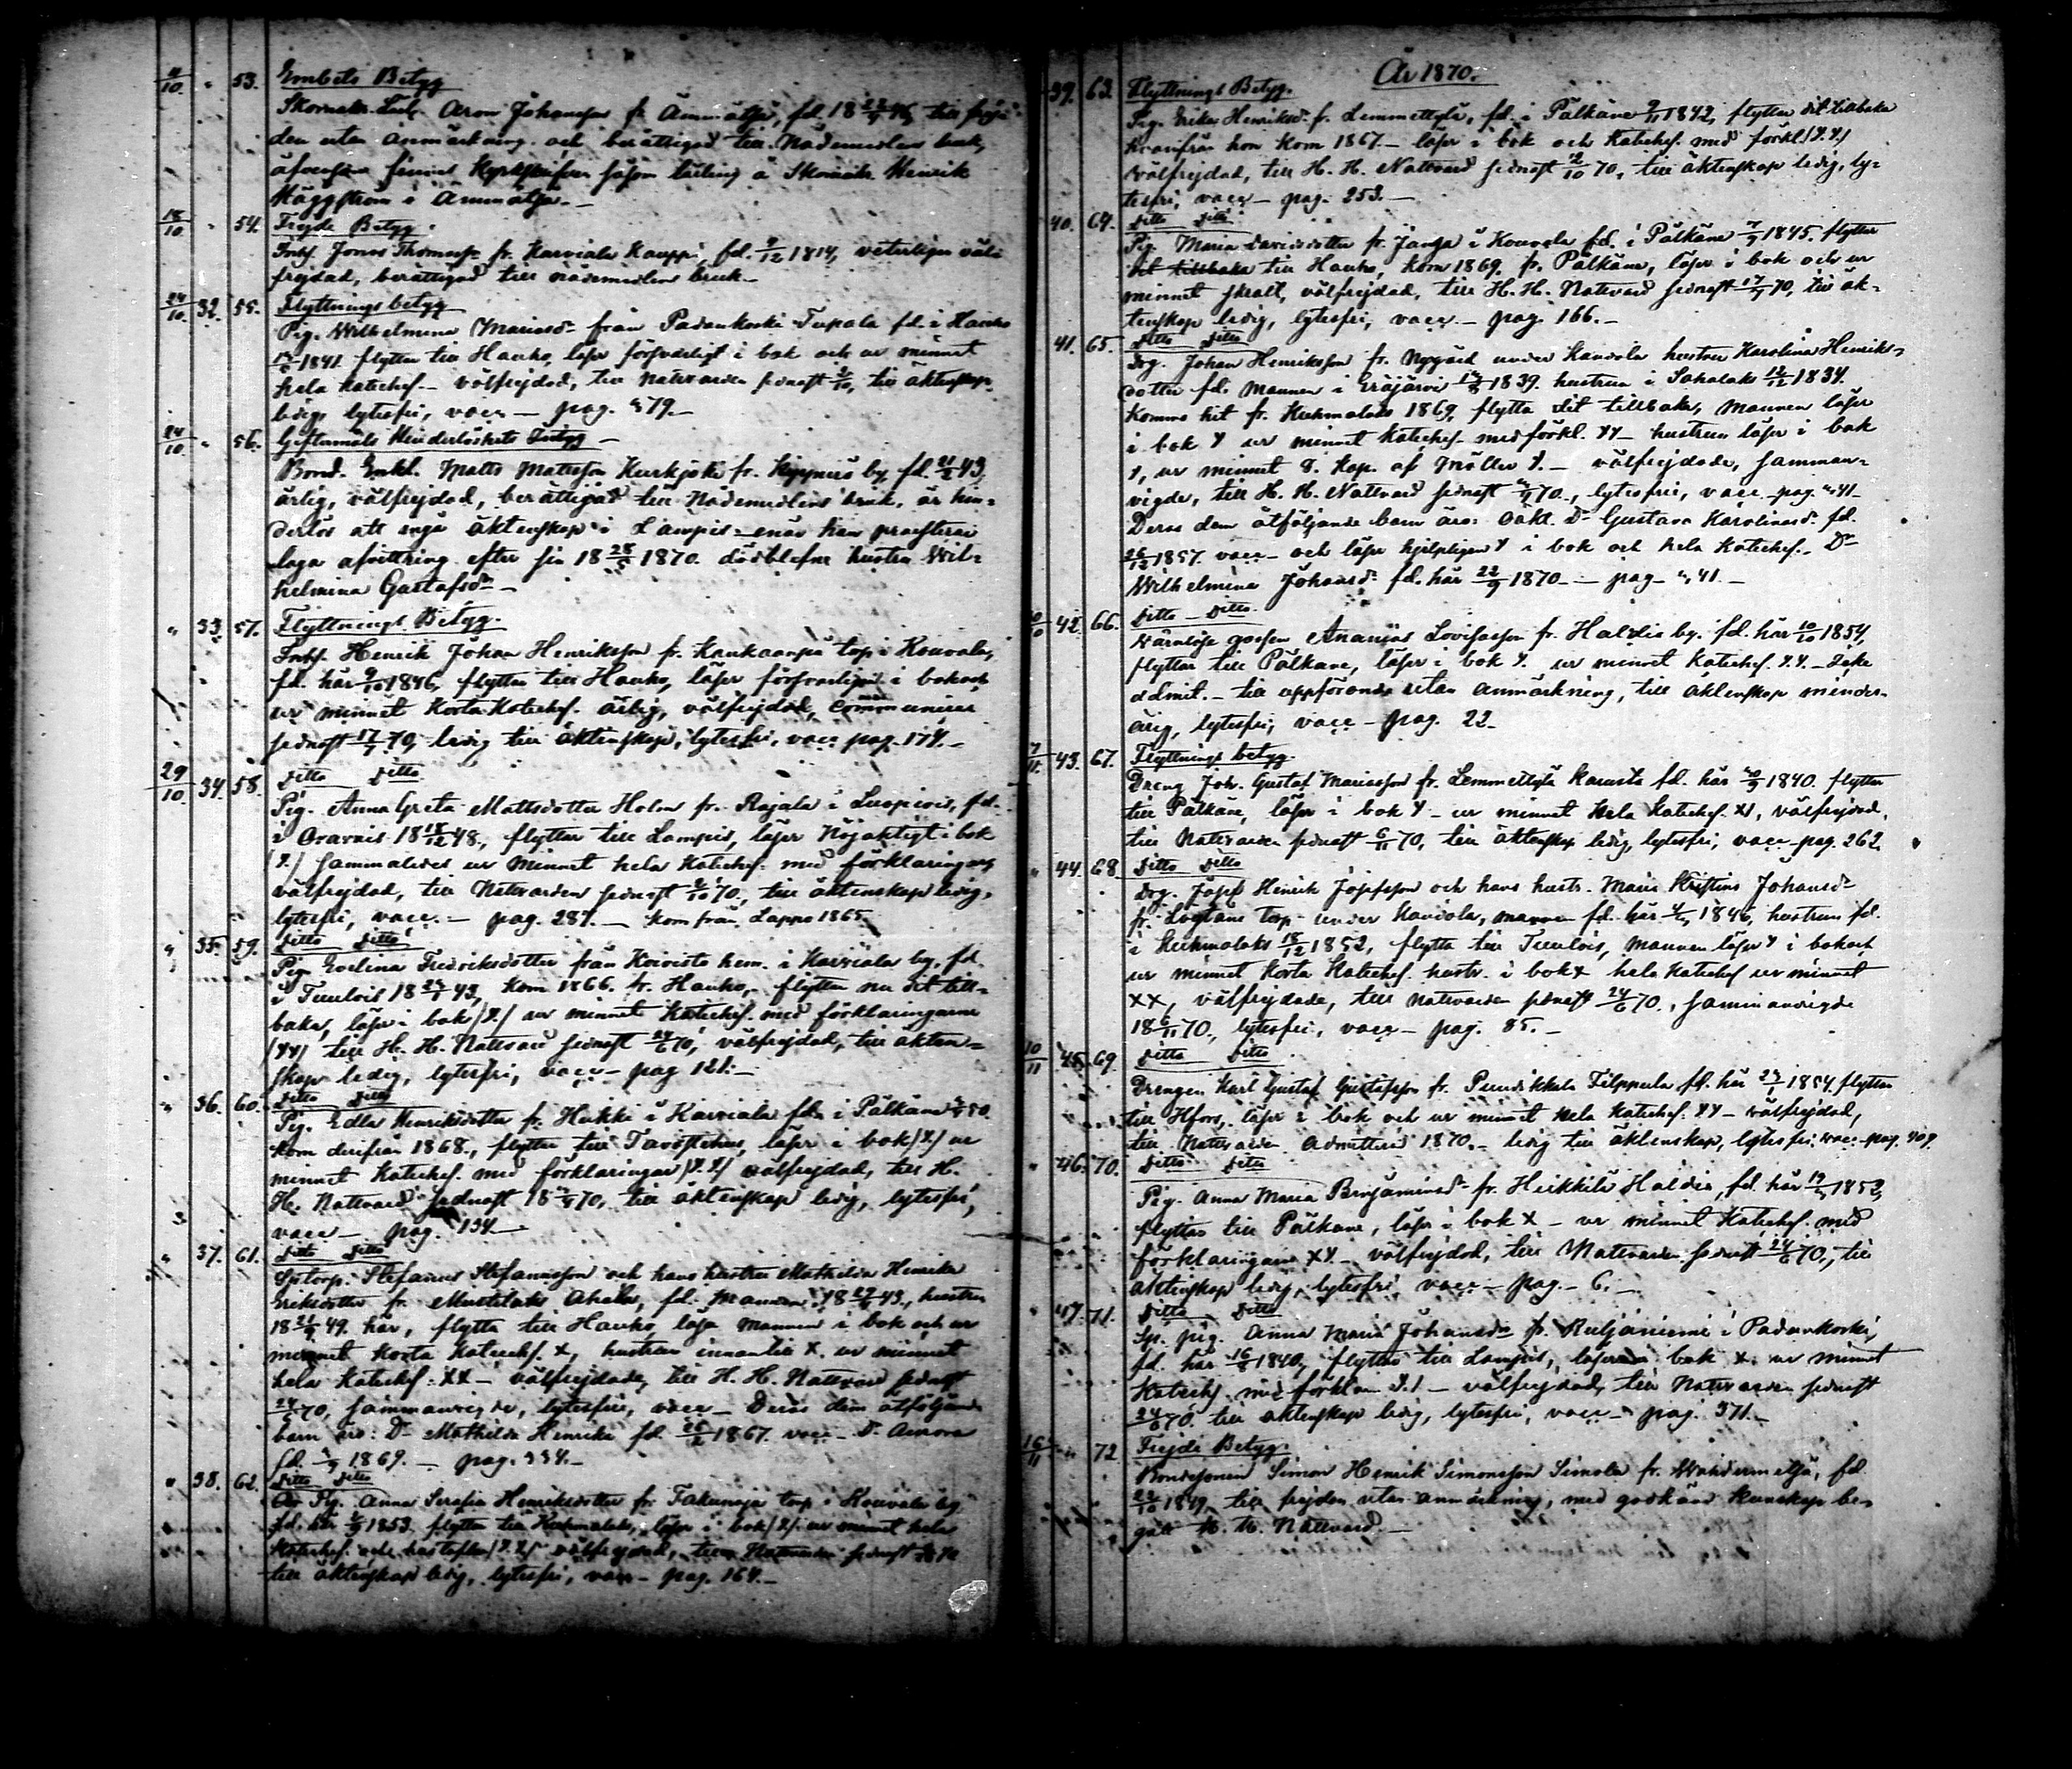 11/10. " 53. Embets Betyg
Skomak. Lärl. Aron Johansson fr. Ämmätsä, fd. 18 46, till frejd
den utan anmärkning och berättigad till Nådemedlens bruk,
såsom lärling å Skomak. Henrik
Häggström i Ämmätsä. —
18/10 " 54. Frejde Betyg.
Inhs. Jonas Thomass. fr. Karviala Kauppi, fd. 9/12 1814, veterligen väl-
frejdad, berättigad till nådemedlens bruk —
24/10. 32. 55. Flyttnings betyg
Pig. Wilhelmina Mariasd. från Padankoski Tupala fd. i Hauho
1841 flyttar till Hauho, läser försvarligt i bok och ur minnet
hela Katechs. — välfrejdad, till Nattvarden sednast, till äktenskap
ledig, lytesfri, vacc. — pag. 479. —
24/10. " 56. Giftermåls Hinderlöshets Intyg —
Bond. Enkl. Matts Matsson Kurkijoki fr. by, fd. 21/2 43,
ärlig, välfrejdad, berättigad till Nådemedlens bruk, är hin-
derlös att ingå äktenskap i Lampis enär han præsterar
laga afvittring efter sin 18 28/5 1870 dödblefne hustru Wil-
helmina Gustafsdr —
" 33. 57. Flyttnings Betyg.
Inhs. Henrik Johan Henriksson fr. Kankaanpä torp i Kouvala,
fd. här 9/10 1846, flyttar till Hauho, läser försvarligt i bok och
ur minnet Korta Katechs. ärlig, välfrejdad, communicerat
sednast 17/7 70, ledig till äktenskap, lytesfri, vacc pag. 174. —
29/10. 34. 58. Ditto Ditto
Pig. Anna Greta Mattsdotter Holm fr. Rajala i Luopiois, fd.
i Oravais 18 18/12 48, flyttar till Lampis, läser Nöjaktigt i bok
/Y./ sammaledes ur minnet hela Katechs. med förklaringar,
välfrejdad, till Nattvarden sednast 70, till äktenskap ledig,
lytesfri, vacc. — pag. 287. — Kom från Lappo 1865
" 35. 59. Ditto Ditto
Pig. Evelina Fredriksdotter från Koivisto hem. i Karviala by, fd.
i Tuulois 18 43, kom 1866 fr. Hauho, flyttar nu dit till-
baka, läser i bok /Y./ ur minnet Katechs. med förklaringarne
/YY/ till H. H. Nattvard sednast 24/6 70, välfrejdad, till äkten-
skap ledig, lytesfri, vacc — pag 121. —
" 36. 60. Ditto Ditto
Pig. Edla Henriksdotter fr. Heikki i Karviala fd. i Pälkäne 50.
kom derifrån 1868., flyttar till Tavastehus, läser i bok /Y./ ur
minnet Katechs. med förklaringar /Y.Y./ välfrejdad, till H.
H. Nattvard sednast 18 70, till äktenskap ledig, lytesfri,
vacc — pag. 134 —
" 37. 61. Ditto Ditto
Sptorp. Stefanus Stefansson och hans hustru Mathilda Henrika
Eriksdotter fr. Mustilaks Ahala, fd. Mannen 18 43, hustrun
18 49 här, flytta till Hauho, läsa mannen i bok och ur
minnet Korta Katechs. X, hustrun innantill X. ur minnet
hela Katechs. XX — välfrejdade, till H. H. Nattvard sednast
24/6 70, sammanvigde, lytesfrie, vacc — Deras dem åtföljande
barn äro: Dr Mathilda Henrika fd. 1867. vacc — Dr. Aurora
fd. 1869. — pag. 334. —
" 38. 62. Ditto Ditto
Pig. Anna Serafia Henriksdotter fr. torp i Kouvala by
fd. här 1853 flyttar till Kuhmalaks, läser i bok /Y./ ur minnet hela
Katechs. och hustaflan /Y.Y./ välfrejdad, till Nattvarden sednast
till äktenskap ledig, lytesfri, vacc — pag. 164. —
År 1870.
39. 63. Flyttnings Betyg.
Pig. Erika Henriksd. fr. Lemmettylä, fd. i Pälkäne 9/11 1842, flyttar dit tillbaka
hvarifrån hon kom 1867. — läser i bok och Katechs. med förkl. /Y.Y./
välfrejdad, till H. H. Nattvard sednast 2/10 70, till äktenskap ledig, ly-
tesfri, vacc — pag. 253. —
40. 64. Ditto Ditto
Pig. Maria Davidsdotter fr. Janja i Kouvala fd. i Pälkäne 7/9 1845. flyttar
dit tillbaka till Hauho, kom 1869 fr. Pälkäne, läser i bok och ur
minnet, välfrejdad, till H. H. Nattvard sednast 17/7 70, till äk-
tenskap ledig, lytesfri, vacc. — pag. 166. —
41. 65. Ditto Ditto
Drg. Johan Henriksson fr. Nygård under Kandola hustrun Karolina Henriks-
dotter fd. mannen i Eräjärvi 1839. hustrun i Sahalaks 12/12 1834.
Komna hit fr. Kuhmalaks 1869, flytta dit tillbaka, mannen läser
i bok Y ur minnet Katechs. med förkl. YY — hustrun läser i bok
Y, ur minnet 8. Kap. af Möller Y. — välfrejdade, samman-
vigde, till H. H. Nattvard sednast 70., lytesfrie, vacc. pag. 41 —
Deras dem åtföljande barn äro: oäkt. Dr Gustava Karolinasd. fd.
26/12 1857 vacc — och läser hjelpligen Y i bok och hela Katechs. — Dr
Wilhelmina Johansd. fd. här 22/9 1870 — pag — 41. —
/10 42. 66. Ditto — Ditto
Wärnlöse gossen Ananias Lovisasson fr. Haltia by. fd. här 10/10 1854,
flyttar till Pälkäne, läser i bok Y. ur minnet Katechs. Y.Y. — Icke
admit. — till uppförande utan anmärkning, till äktenskap minder-
årig, lytesfri, vacc — pag. 22 —
7/11. 43. 67. Flyttnings betyg
Dreng Joh. Gustaf Mariasson fr. Lemmettylä fd. här 1840. flyttar
till Pälkäne, läser i bok Y — ur minnet hela Katechs. XX, välfrejdad,
till Nattvarden sednast 6/11 70, till äktenskap ledig, lytesfri, vacc — pag. 262.
" 44. 68. Ditto Ditto
Drg. Josef Henrik Josefsson och hans hustr. Maria Kristina Johansdr
fr. torp under Kandola, mannen fd. här 1846, hustrun fd.
i Kuhmalaks 18/12 1852, flytta till Tuulois, mannen läser Y i bok och
ur minnet Korta Katechs. hustr. i bok X hela Katechs ur minnet
XX, välfrejdade, till Nattvarden sednast 24/6 70., sammanvigde
18 6/11 70., lytesfri, vacc — pag. 85. —
10/11 45. 69. Ditto Ditto
Drengen Karl Gustaf Gustafsson fr. Puutikkala Filppula fd. här 1854 flyttar
till Hfors, läser i bok och ur minnet hela Katechs. YY — välfrejdad,
till Nattvarden admitterad 1870. — ledig till äktenskap, lytesfri, vacc — pag. 409.
" 46. 70. Ditto Ditto
Pig. Anna Maria Benjaminsdr fr. Heikkilä Haltia, fd. här 1852,
flyttar till Pälkäne, läser i bok X — ur minnet Katechs. med
förklaringarne XY — välfrejdad, till Nattvarden sednast 24/6 70, till
äktenskap ledig, lytesfri, vacc — pag. — 6. —
" 47. 71. Ditto Ditto
Sp. pig. Anna Maria Johansdr fr. Ruljaniemi i Padankoski,
fd. här 16/8 1840, flyttar till Lampis, läser i bok X. ur minnet
Katechs. med förklar. — välfrejdad, till Nattvarden sednast
24/6 70. till äktenskap ledig, lytesfri, vacc — pag. 371. —
16/11 " 72 Frejde Betyg.
Bondesonen Simon Henrik Simonsson Simola fr. Wahdermetsä, fd
22/10 1849, till frejden utan anmärkning, med godkänd kunskap be-
gått H. H. Nattvard. —